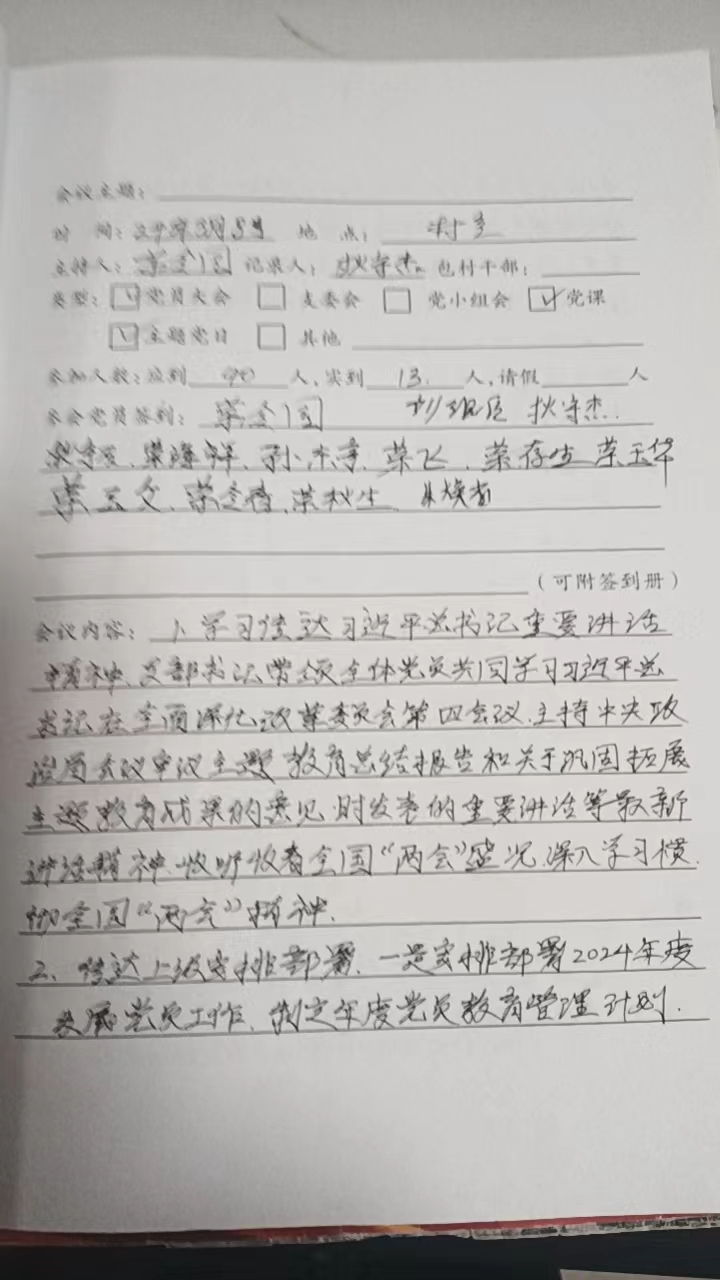 会议主题:
时 间: 24年3月5号 地 点: 村室
主持人: 记录人: 狄守杰 包村干部:
类型: 党员大会 支委会 党小组会 党课
主题党日 其他
参加人数: 应到 人,实到 13. 人,请假 人
参会党员签到: 狄守杰.
荣飞. 荣存生 荣玉华
荣玉文.
(可附签到册)
会议内容: 1、学习传达习近平总书记重要讲话
精神、支部书记带领全体党员共同学习习近平总
书记在全面深化改革委员会第四会议.主持中央政
治局会议审议主题教育总结报告和关于巩固拓展
主题教育成果的意见 时发表的重要讲话等最新
讲话精神.收听收看全国“两会”盛况.深入学习横
全国“两会”精神.
2、传达上级安排部署.一是安排部署2024年度
发展党员工作、制定年度党员教育管理计划.